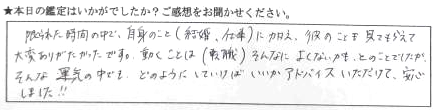 ★本日の鑑定はいかがでしたか？ご感想をお聞かせください。
限られた時間の中で、自身のこと(結婚、仕事)に加え、彼のことも見てもらえて
大変ありがたかったです。動くことは(転職)そんなによくないかも、とのことでしたが、
そんな運気の中でも、どのようにしていけばいいかアドバイスいただけて、安心
しました!!